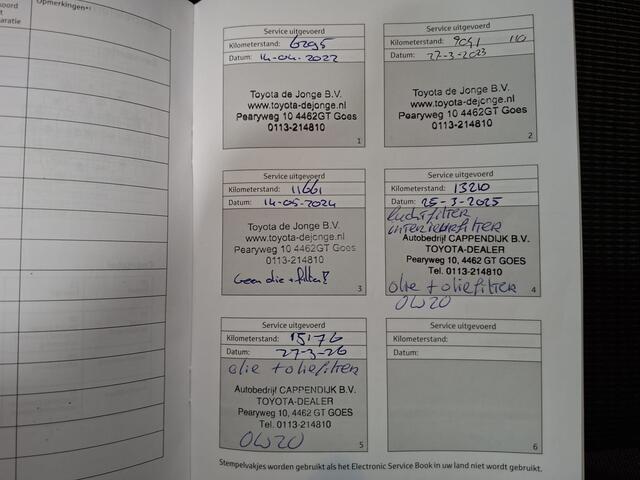 koord
t
aratie
Opmerkingen*¹
Service uitgevoerd
Kilometerstand: 6295
Datum: 14-04-2022
Toyota de Jonge B.V.
www.toyota-dejonge.nl
Pearyweg 10 4462GT Goes
0113-214810
1
Service uitgevoerd
Kilometerstand: 9041 110
Datum: 27-3-2023
Toyota de Jonge B.V.
www.toyota-dejonge.nl
Pearyweg 10 4462GT Goes
0113-214810
2
Service uitgevoerd
Kilometerstand: 11661
Datum: 14-05-2024
Toyota de Jonge B.V.
www.toyota-dejonge.nl
Pearyweg 10 4462GT Goes
0113-214810
Geen olie + filter!
3
Service uitgevoerd
Kilometerstand: 13210
Datum: 25-3-2025
luchtfilter
interieurfilter
Autobedrijf CAPPENDIJK B.V.
TOYOTA-DEALER
Pearyweg 10, 4462 GT GOES
Tel. 0113-214810
olie + oliefilter
0W20
4
Service uitgevoerd
Kilometerstand: 15176
Datum: 27-3-26
olie + oliefilter
Autobedrijf CAPPENDIJK B.V.
TOYOTA-DEALER
Pearyweg 10, 4462 GT GOES
Tel. 0113-214810
0W20
5
Service uitgevoerd
Kilometerstand:
Datum:
6
Stempelvakjes worden gebruikt als het Electronic Service Book in uw land niet wordt gebruikt.